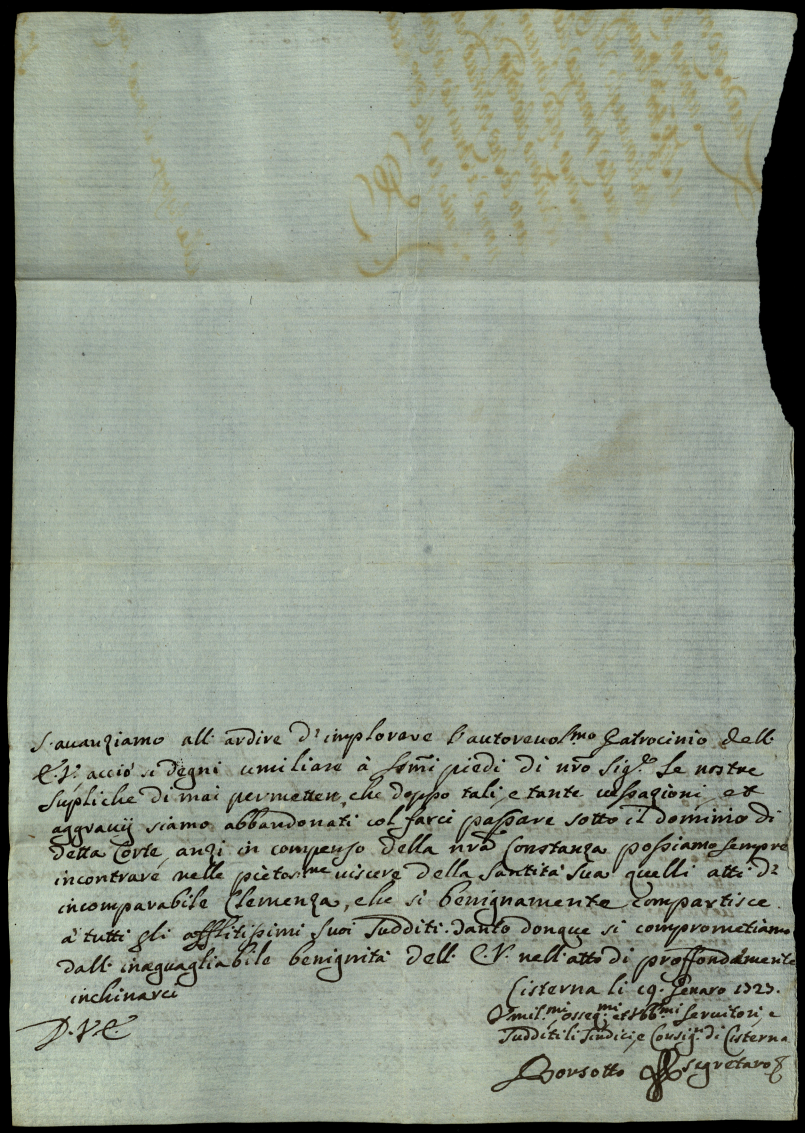 S'avanziamo all'ardire d'implorare l'autorevol.mo Patrocinio dell'
E.V. acciò si degni umiliare à S.mi piedi di nro Sig.re le nostre
supliche di mai permetter, che doppo tali, e tante vessazioni, et
aggravij siamo abbandonati col farci passare sotto il dominio di
detta Corte, anzi in compenso della nra Constanza possiamo sempre
incontrare nelle pietos.me viscere della Santità Sua quelli atti d'
incomparabile Clemenza, che si benignamente compartisce
à tutti gli afflitissimi suoi sudditi. Tanto donque si comprometiamo
dall'inaeguagliabile benignità dell'E.V. nell'atto di proffondamente
inchinarci
Cisterna li 19. Genaro 1723.
D.V.E.
Umil.mi osseq.mi et obb.mi servitori, e
sudditi li Sindici, e Consig.ri di Cisterna
Borsotto Segretaro